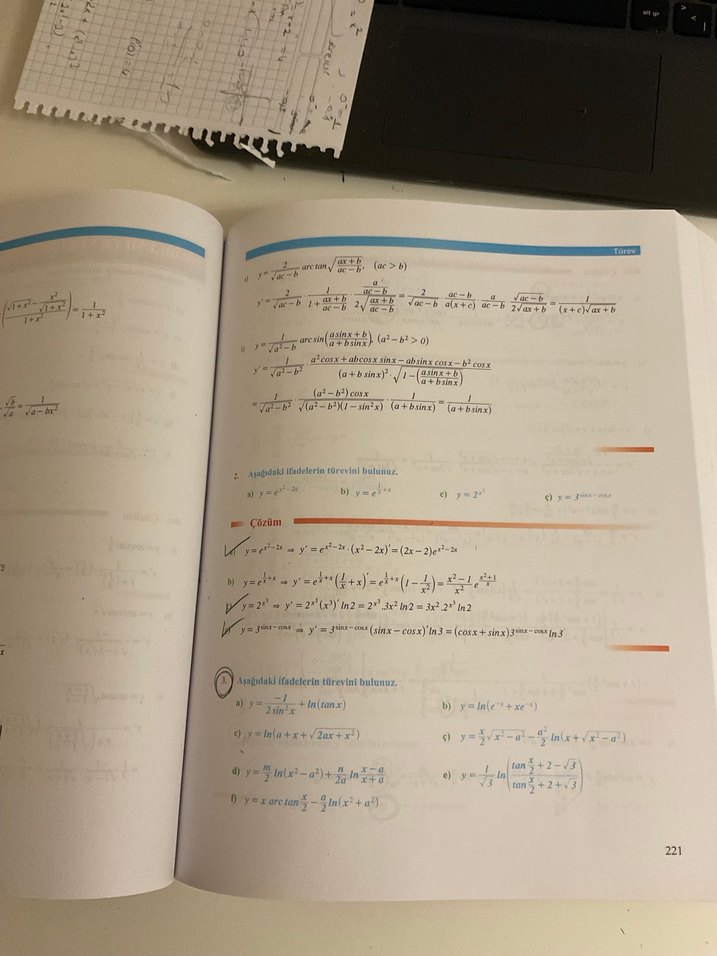 alt gr
Türev
ı) y = \frac{2}{\sqrt{ac-b}} arc tan \sqrt{\frac{ax+b}{ac-b}}, (ac > b)
y' = \frac{2}{\sqrt{ac-b}} \cdot \frac{1}{1+\frac{ax+b}{ac-b}} \cdot \frac{\frac{a}{ac-b}}{2\sqrt{\frac{ax+b}{ac-b}}} = \frac{2}{\sqrt{ac-b}} \cdot \frac{ac-b}{a(x+c)} \cdot \frac{a}{ac-b} \cdot \frac{\sqrt{ac-b}}{2\sqrt{ax+b}} = \frac{1}{(x+c)\sqrt{ax+b}}
i) y = \frac{1}{\sqrt{a^2-b^2}} arc sin(\frac{a sinx+b}{a+b sinx}), (a^2-b^2>0)
y' = \frac{1}{\sqrt{a^2-b^2}} \cdot \frac{a^2 cosx + ab cosx sinx - ab sinx cosx - b^2 cosx}{(a+b sinx)^2 \cdot \sqrt{1-(\frac{a sinx+b}{a+b sinx})}}
= \frac{1}{\sqrt{a^2-b^2}} \cdot \frac{(a^2-b^2) cosx}{\sqrt{(a^2-b^2)(1-sin^2x)}} \cdot \frac{1}{(a+b sinx)} = \frac{1}{(a+b sinx)}
2. Aşağıdaki ifadelerin türevini bulunuz.
a) y = e^{x^2-2x} b) y = e^{\frac{1}{x}+x} c) y = 2^{x^3} ç) y = 3^{sinx-cosx}
Çözüm
y = e^{x^2-2x} ⇒ y' = e^{x^2-2x} \cdot (x^2-2x)' = (2x-2)e^{x^2-2x}
b) y = e^{\frac{1}{x}+x} ⇒ y' = e^{\frac{1}{x}+x}(\frac{1}{x}+x)' = e^{\frac{1}{x}+x}(1-\frac{1}{x^2}) = \frac{x^2-1}{x^2} e^{\frac{x^2+1}{x}}
y = 2^{x^3} ⇒ y' = 2^{x^3}(x^3)' ln2 = 2^{x^3}.3x^2 ln2 = 3x^2.2^{x^3} ln2
y = 3^{sinx-cosx} ⇒ y' = 3^{sinx-cosx}(sinx-cosx)' ln3 = (cosx+sinx)3^{sinx-cosx} ln3
3. Aşağıdaki ifadelerin türevini bulunuz.
a) y = \frac{-1}{2 sin^2 x} + ln(tanx) b) y = ln(e^{-x}+xe^{-x})
c) y = ln(a+x+\sqrt{2ax+x^2}) ç) y = \frac{x}{2}\sqrt{x^2-a^2} - \frac{a^2}{2} ln(x+\sqrt{x^2-a^2})
d) y = \frac{m}{2} ln(x^2-a^2) + \frac{n}{2a} ln \frac{x-a}{x+a} e) y = \frac{1}{\sqrt{3}} ln(\frac{tan\frac{x}{2}+2-\sqrt{3}}{tan\frac{x}{2}+2+\sqrt{3}})
f) y = x arc tan \frac{x}{2} - \frac{a}{2} ln(x^2+a^2)
221